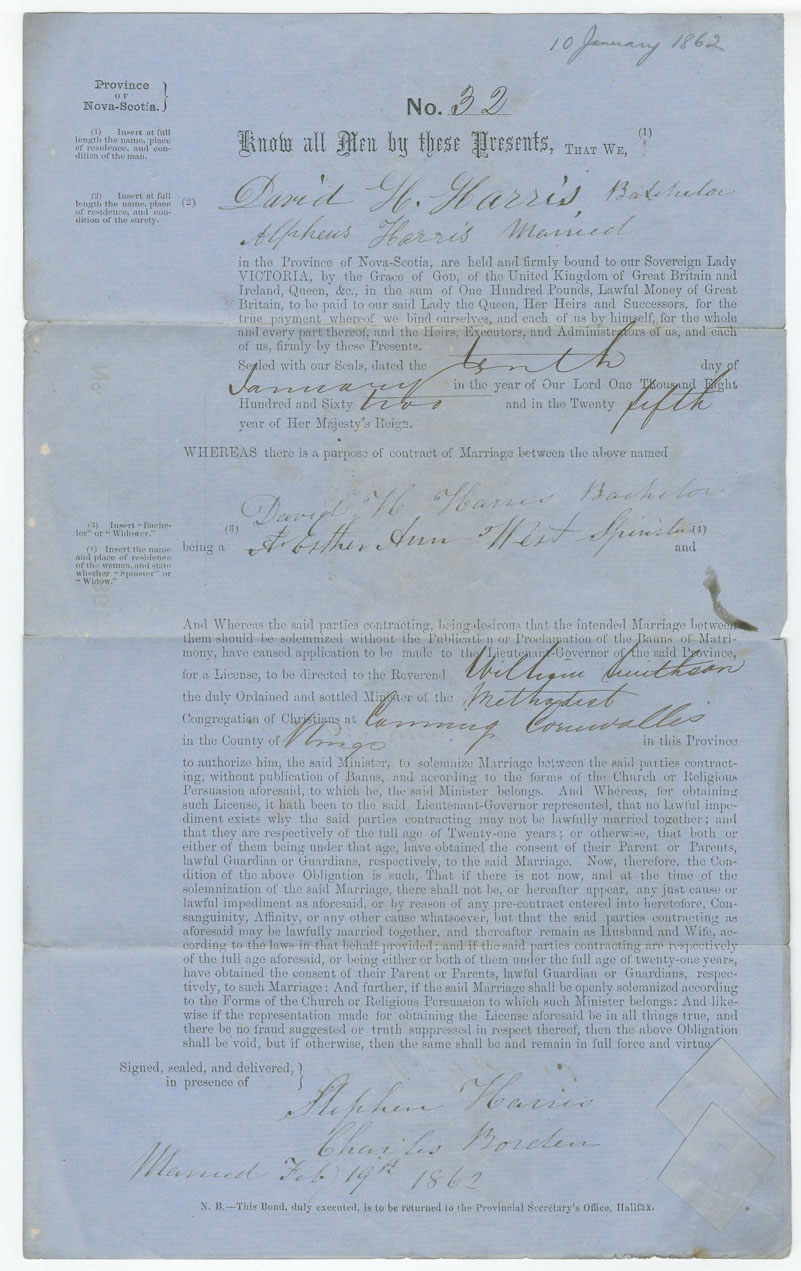 10 January 1862
Province
OF
Nova-Scotia. }
No. 32
(1) Insert at full
length the name, place
of residence, and con-
dition of the man.
Know all Men by these Presents, THAT WE, (1)
(2) Insert at full
length the name, place
of residence, and con-
dition of the surety.
(2) David H. Harris Batchelor
Alpheus Harris Married
in the Province of Nova-Scotia, are held and firmly bound to our Sovereign Lady
VICTORIA, by the Grace of GOD, of the United Kingdom of Great Britain and
Ireland, Queen, &c., in the sum of One Hundred Pounds, Lawful Money of Great
Britain, to be paid to our said Lady the Queen, Her Heirs and Successors, for the
true payment whereof we bind ourselves, and each of us by himself, for the whole
and every part thereof, and the Heirs, Executors, and Administrators of us, and each
of us, firmly by these Presents.
Sealed with our Seals, dated the tenth day of
January in the year of Our Lord One Thousand Eight
Hundred and Sixty two and in the Twenty fifth
year of Her Majesty's Reign.
WHEREAS there is a purpose of contract of Marriage between the above named
David H Harris Bachelor
(3) Insert "Bache-
lor" or "Widower."
(4) Insert the name
and place of residence
of the woman, and state
whether "Spinster" or
"Widow."
being a (3) & Esther Ann West Spinster (4)
and
And Whereas the said parties contracting, being desirous that the intended Marriage between
them should be solemnized without the Publication or Proclamation of the Banns of Matri-
mony, have caused application to be made to the Lieutenant-Governor of the said Province,
for a License, to be directed to the Reverend William Smithson
the duly Ordained and settled Minister of the Methodist
Congregation of Christians at Canning Cornwallis
in the County of Kings in this Province
to authorize him, the said Minister, to solemnize Marriage between the said parties contract-
ing, without publication of Banns, and according to the forms of the Church or Religious
Persuasion aforesaid, to which he, the said Minister belongs. And Whereas, for obtaining
such License, it hath been to the said Lieutenant-Governor represented, that no lawful impe-
diment exists why the said parties contracting may not be lawfully married together; and
that they are respectively of the full age of Twenty-one years; or otherwise, that both or
either of them being under that age, have obtained the consent of their Parent or Parents,
lawful Guardian or Guardians, respectively, to the said Marriage. Now, therefore, the Con-
dition of the above Obligation is such, That if there is not now, and at the time of the
solemnization of the said Marriage, there shall not be, or hereafter appear, any just cause or
lawful impediment as aforesaid, or by reason of any pre-contract entered into heretofore, Con-
sanguinity, Affinity, or any other cause whatsoever, but that the said parties contracting as
aforesaid may be lawfully married together, and thereafter remain as Husband and Wife, ac-
cording to the laws in that behalf provided; and if the said parties contracting are respectively
of the full age aforesaid, or being either or both of them under the full age of twenty-one years,
have obtained the consent of their Parent or Parents, lawful Guardian or Guardians, respec-
tively, to such Marriage: And further, if the said Marriage shall be openly solemnized according
to the Forms of the Church or Religious Persuasion to which such Minister belongs: And like-
wise if the representation made for obtaining the License aforesaid be in all things true, and
there be no fraud suggested or truth suppressed in respect thereof, then the above Obligation
shall be void, but if otherwise, then the same shall be and remain in full force and virtue.
Signed, sealed, and delivered, }
in presence of
Stephen Harris
Charles Borden
Married Feb 19th 1862
N. B.—This Bond, duly executed, is to be returned to the Provincial Secretary's Office, Halifax.